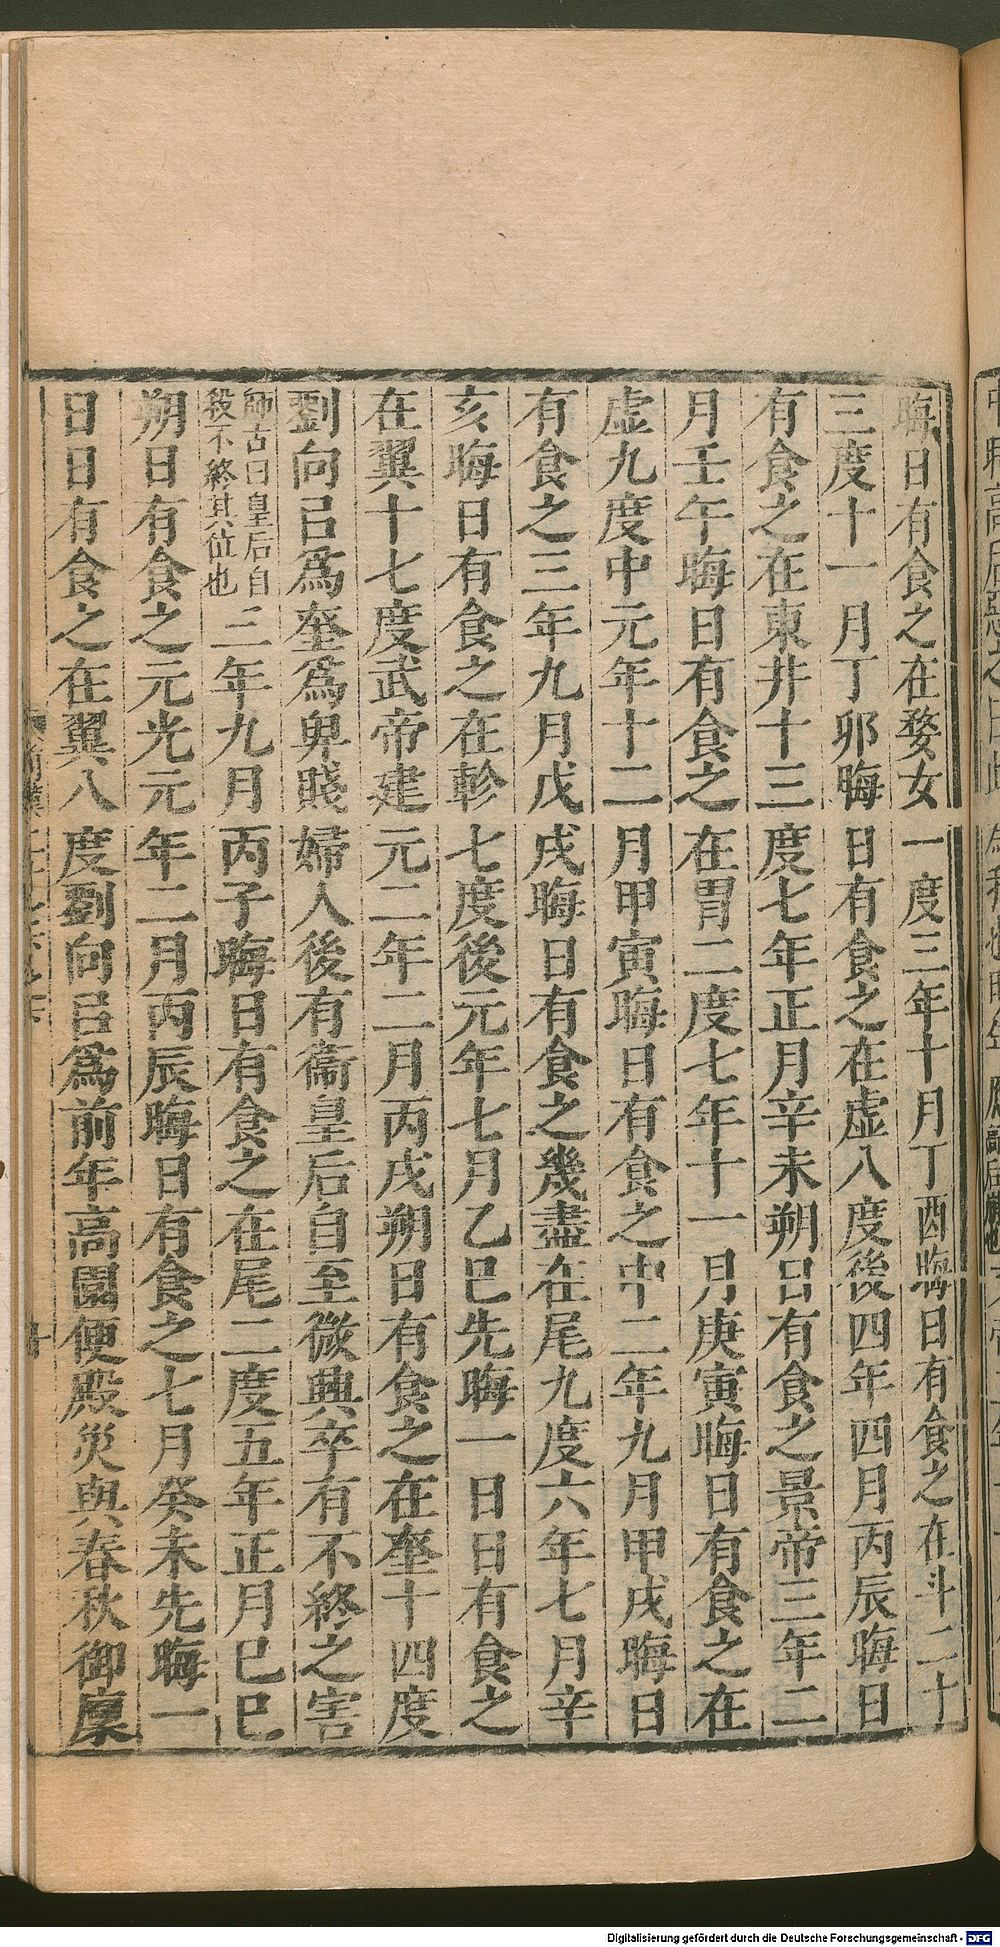 晦日有食之在婺女一度三年十月丁酉晦日有食之在斗二十
三度十一月丁卯晦日有食之在虛八度後四年四月丙辰晦日
有食之在東井十三度七年正月辛未朔日有食之景帝三年二
月壬午晦日有食之在胃二度七年十一月庚寅晦日有食之在
虛九度中元年十二月甲寅晦日有食之中二年九月甲戌晦日
有食之三年九月戊戌晦日有食之幾盡在尾九度六年七月辛
亥晦日有食之在軫七度後元年七月乙巳先晦一日日有食之
在翼十七度武帝建元二年二月丙戌朔日有食之在奎十四度
劉向㠯爲奎爲卑賤婦人後有衞皇后自至微興卒有不終之害
師古曰皇后自
殺不終其位也
三年九月丙子晦日有食之在尾二度五年正月己巳
朔日有食之元光元年二月丙辰晦日有食之七月癸未先晦一
日日有食之在翼八度劉向㠯爲前年高園便殿災與春秋御廩
Digitalisierung gefördert durch die Deutsche Forschungsgemeinschaft - DFG